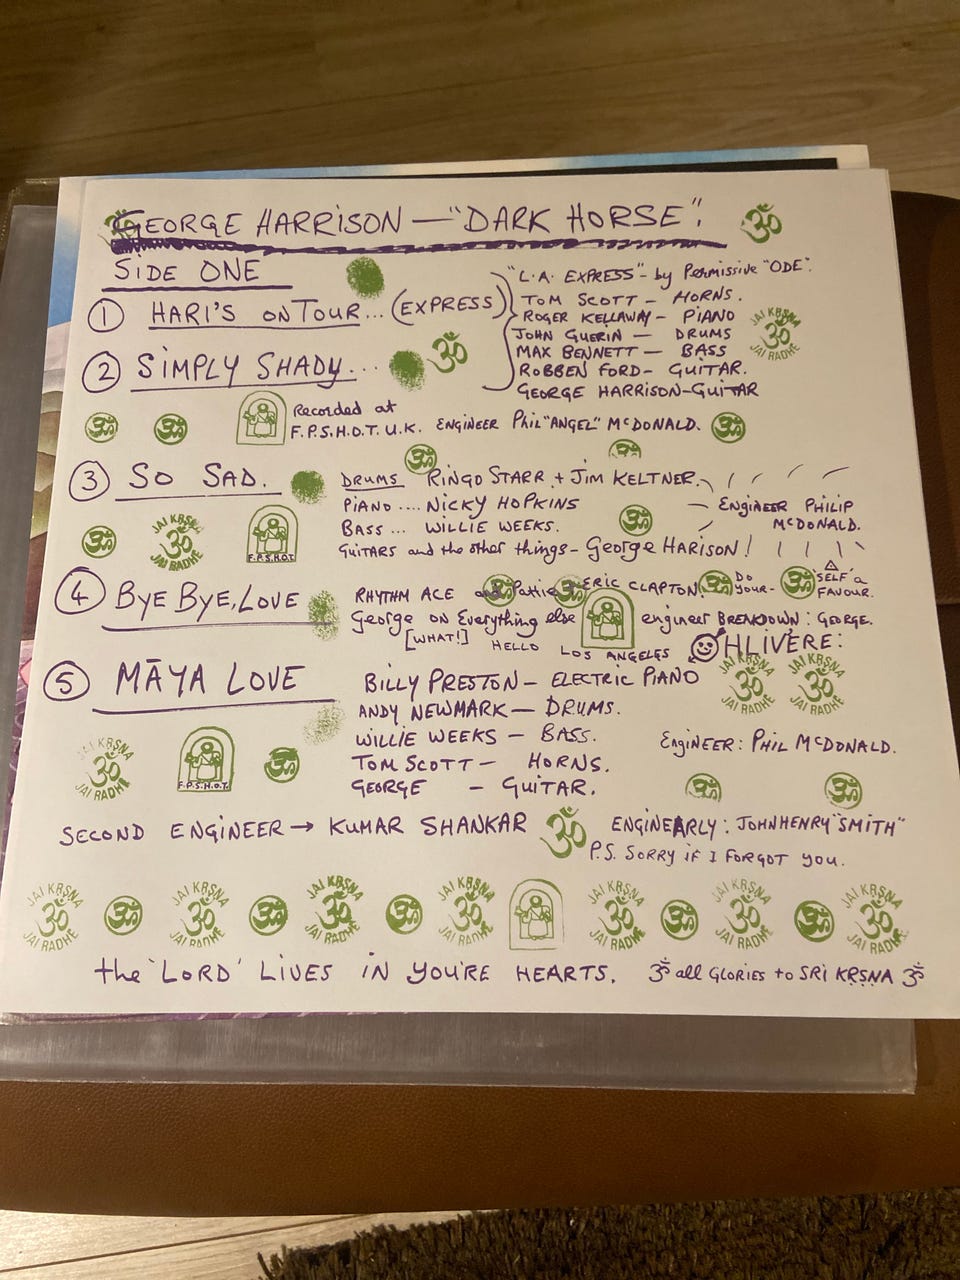 GEORGE HARRISON — "DARK HORSE".
ॐ
SIDE ONE
① HARI'S ON TOUR... (EXPRESS)
"L.A. EXPRESS" - by Permissive "ODE".
TOM SCOTT — HORNS.
ROGER KELLAWAY - PIANO
JOHN GUERIN — DRUMS
MAX BENNETT — BASS
ROBBEN FORD - GUITAR.
GEORGE HARRISON - GUITAR
JAI KRSNA
ॐ
JAI RADHE
② SIMPLY SHADY...
ॐ
ॐ ॐ
Recorded at
F.P.S.H.O.T. U.K. ENGINEER Phil "ANGEL" McDONALD.
ॐ
ॐ
③ SO SAD.
DRUMS RINGO STARR + JIM KELTNER.
PIANO .... NICKY HOPKINS
BASS... WILLIE WEEKS.
GUITARS and the other things - George HARISON!
ENGINEER PHILIP
McDONALD.
ॐ
ॐ
JAI KRSNA
ॐ
JAI RADHE
F.P.S.H.O.T.
④ BYE BYE, LOVE
RHYTHM ACE and Pattie ERIC CLAPTON! DO YOUR- 'SELF' a FAVOUR.
George on Everything else engineer BREAKDOWN: GEORGE.
[WHAT!] HELLO LOS ANGELES OHLIVERE:
⑤ MĀYA LOVE
BILLY PRESTON — ELECTRIC PIANO
ANDY NEWMARK — DRUMS.
WILLIE WEEKS — BASS.
TOM SCOTT — HORNS.
GEORGE - GUITAR.
JAI KRSNA
ॐ
JAI RADHE
JAI KRSNA
ॐ
JAI RADHE
ENGINEER: PHIL McDONALD.
JAI KRSNA
ॐ
JAI RADHE
F.P.S.H.O.T.
ॐ
ॐ ॐ
SECOND ENGINEER → KUMAR SHANKAR ॐ ENGINEARLY: JOHNHENRY "SMITH"
P.S. SORRY IF I FORGOT YOU.
JAI KRSNA ॐ JAI RADHE ॐ JAI KRSNA ॐ JAI RADHE ॐ JAI KRSNA ॐ JAI RADHE ॐ JAI KRSNA ॐ JAI RADHE JAI KRSNA ॐ JAI RADHE ॐ JAI KRSNA ॐ JAI RADHE ॐ JAI KRSNA ॐ JAI RADHE
the 'LORD' LIVES IN YOU'RE HEARTS. ॐ all GLORIES to SRI KRSNA ॐ